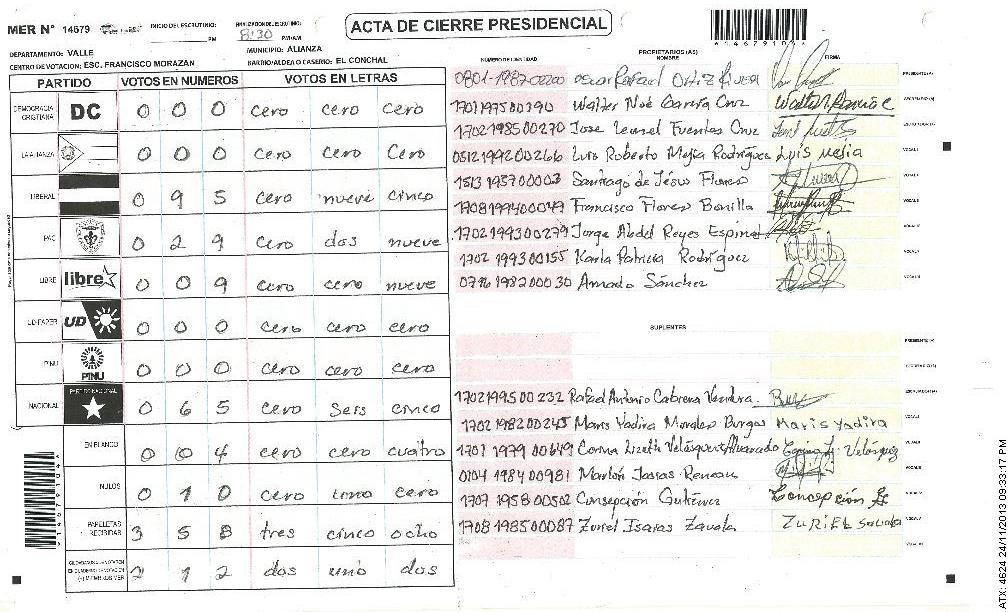 MER N° 14679
INICIO DEL ESCRUTINIO:
PM
8:30 PM/AM
ACTA DE CIERRE PRESIDENCIAL
*14679104*
DEPARTAMENTO: VALLE
MUNICIPIO: ALIANZA
CENTRO DE VOTACION: ESC. FRANCISCO MORAZAN
BARRIO/ALDEA O CASERIO: EL CONCHAL
PARTIDO VOTOS EN NUMEROS VOTOS EN LETRAS
DEMOCRACIA CRISTIANA DC 0 0 0 cero cero cero
LA ALIANZA 0 0 0 cero cero cero
LIBERAL 0 9 5 cero nueve cinco
PAC 0 2 9 cero dos nueve
LIBRE libre 0 0 9 cero cero nueve
UD-FAPER UD 0 0 0 cero cero cero
PINU PINU 0 0 0 cero cero cero
NACIONAL PARTIDO NACIONAL 0 6 5 cero seis cinco
EN BLANCO 0 0 4 cero cero cuatro
NULOS 0 1 0 cero uno cero
PAPELETAS RECIBIDAS 3 5 8 tres cinco ocho
2 1 2 dos uno dos
*14679104*
PROPIETARIOS (AS)
NUMERO DE IDENTIDAD NOMBRE FIRMA
0801-1987-02200 Oscar Rafael Ortiz Rivera PRESIDENTE(A)
1701197500190 Walter Noé García Cruz Walter García C SECRETARIO (A)
1702198500270 Jose Leonel Fuentes Cruz ESCRUTADOR (A)
0512199200266 Luis Roberto Mejia Rodríguez Luis Mejia VOCAL I
1513195700003 Santiago de Jesús Flores
1708199400047 Francisco Flores Bonilla
1702199300279 Jorge Abdel Reyes Espinal
1702199300155 Karla Patricia Rodríguez
0716198200030 Amado Sánchez
SUPLENTES
PRESIDENTE (A)
SECRETARIO (A)
1702199500232 Rafael Antonio Cabrera Ventura. ESCRUTADOR (A)
1702198200245 Maris Yadira Morales Burgos Maris Yadira VOCAL I
1701197900649 Corina Lizeth Velásquez Alvarado Corina L. Velásquez
0104198400981 Marlon Isaias
1707195800502 Consepción Gutiérrez Concepción
1708198500087 Zuriel Isaias Zavala ZURIEL
ATX: 4624 24/11/2013 09:33:17 PM